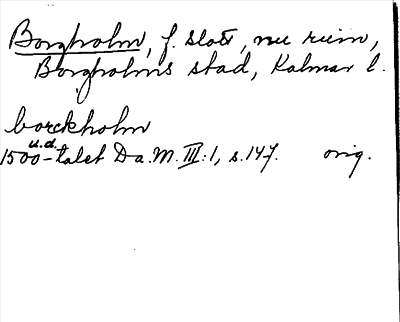 Borgholm, f. slott, nu ruin,
Borgholms stad, Kalmar l.
borckholm
u.d.
1500-talet Da.M. III:1, s.147. orig.